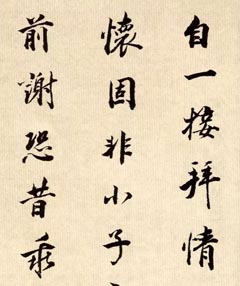 自一接拜情
懷固非小子
前謝恐昔